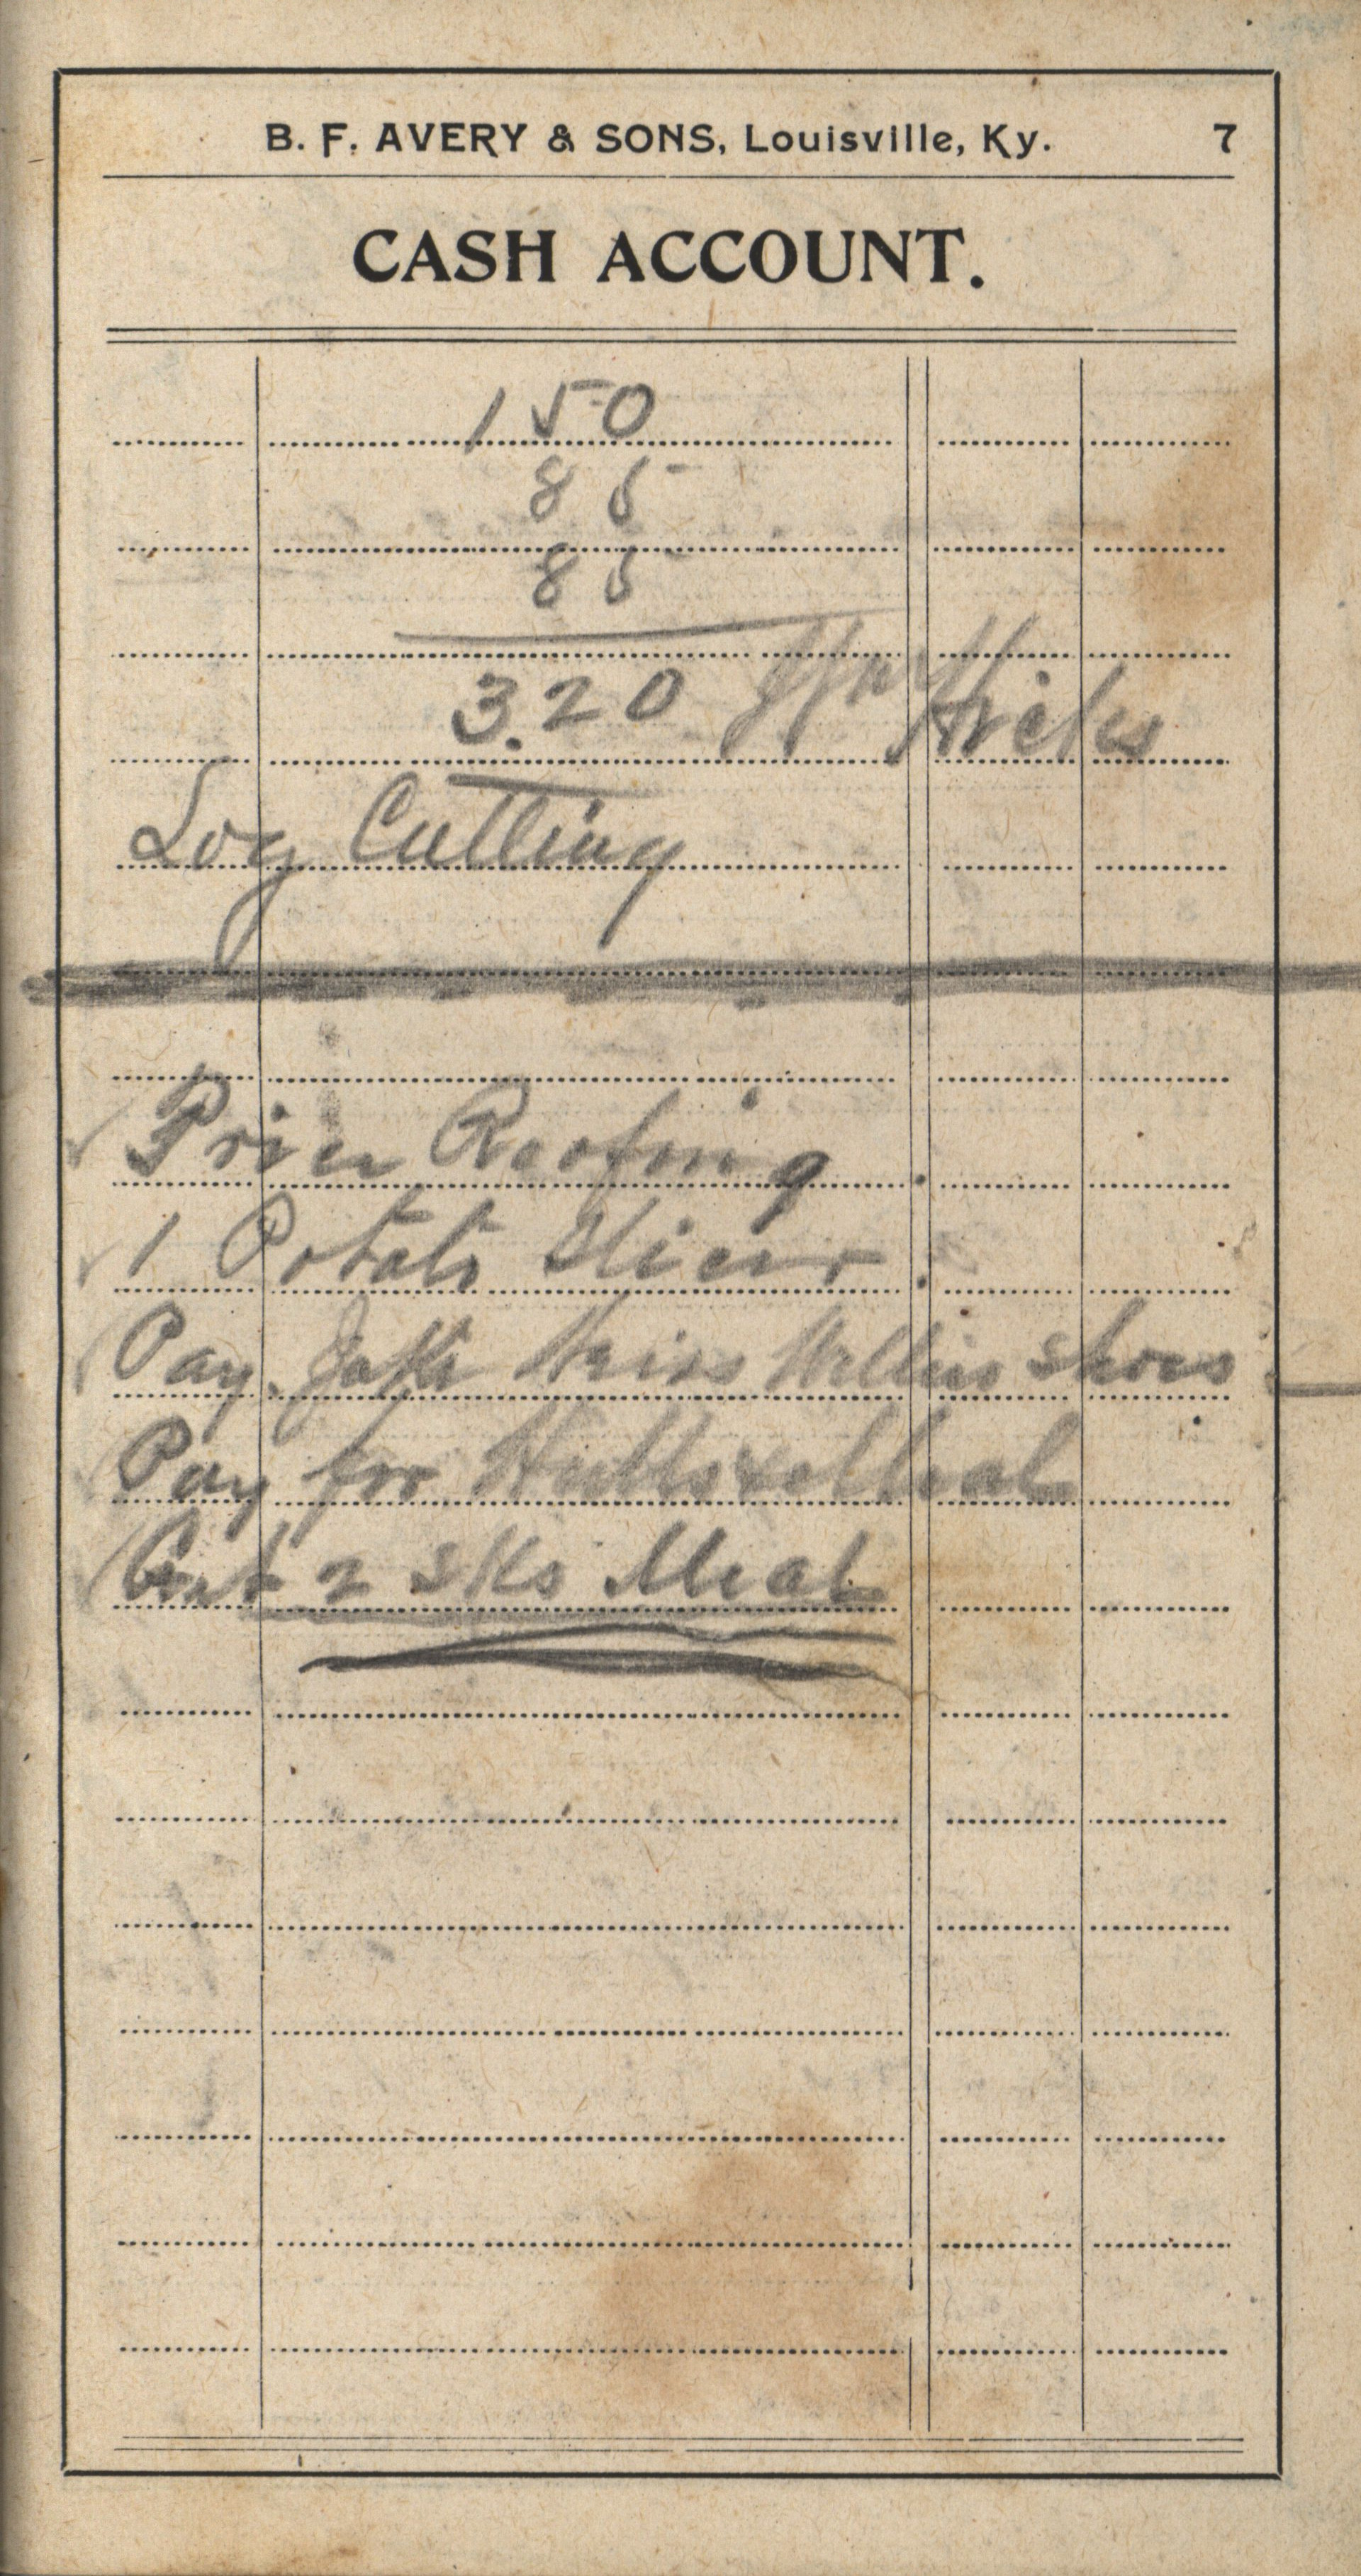 B. F. AVERY & SONS, Louisville, Ky. 7
CASH ACCOUNT.
150
85
85
3.20 Wm Hicks
Log Cutting
Price Roofing
1 Potato Slicer
Pay Jake Willies Shoes
Pay for Meal
Get 2 sks Meal